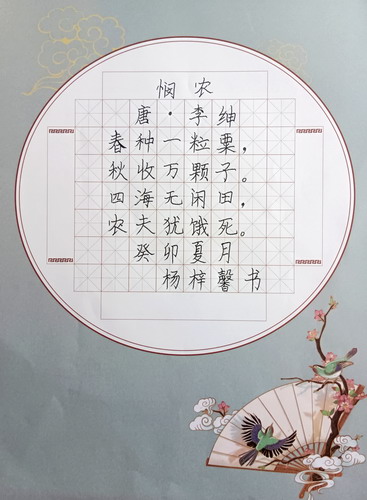 悯农
唐·李绅
春种一粒粟，
秋收万颗子。
四海无闲田，
农夫犹饿死。
癸卯夏月
杨梓馨书